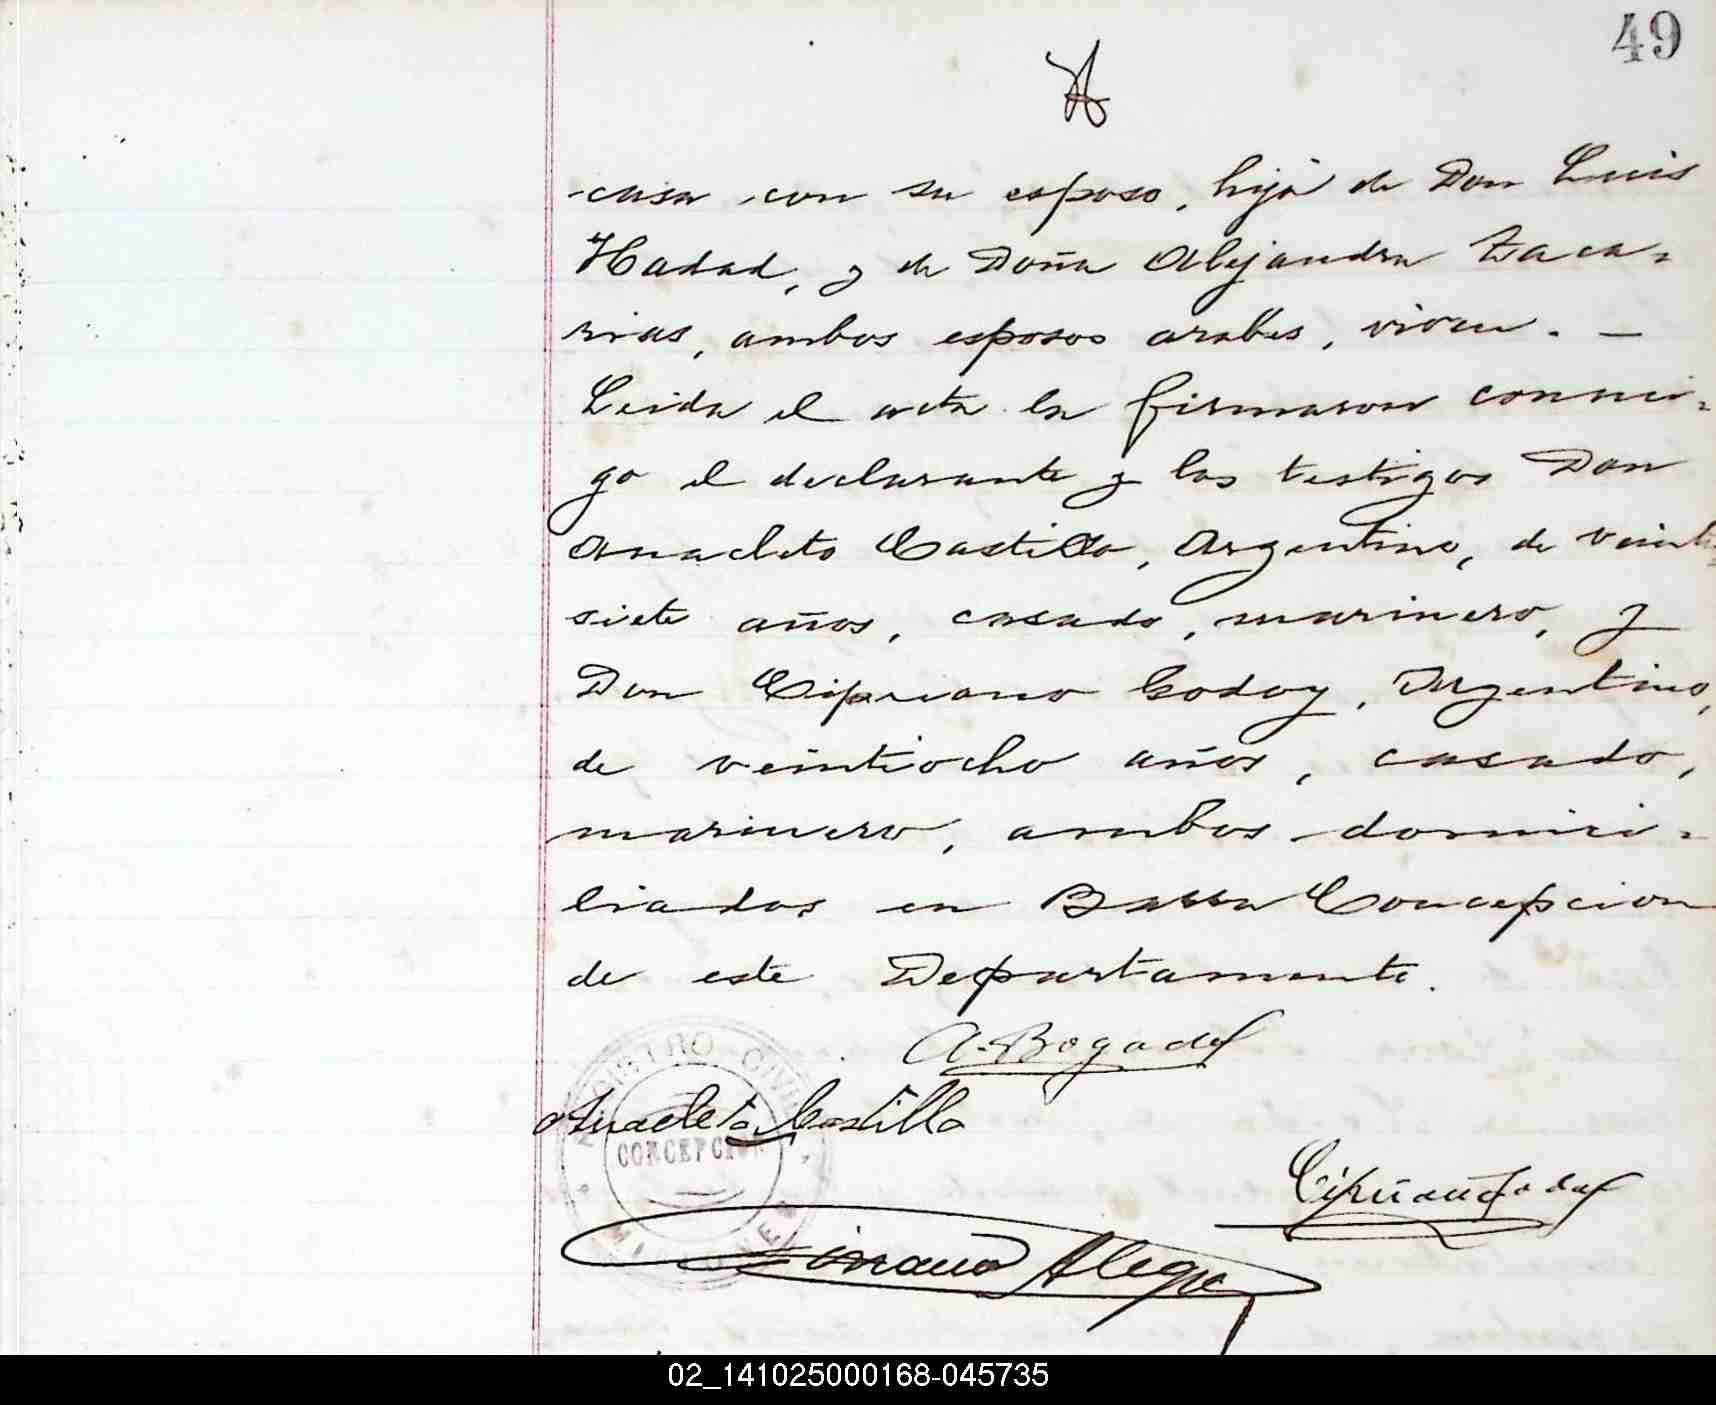 49
casa con su esposo, hija de Don Luis
Hadad, y de Doña Alejandra Zaca=
rias, ambos esposos arabes, viven. —
Leida el acta la firmaron conmi=
go el declarante y los testigos Don
Anacleto Castillo, Argentino, de veinti=
siete años, casado, marinero, y
Don Cipriano Godoy, Argentino,
de veintiocho años, casado,
marinero, ambos domici=
liados en Barra Concepcion
de este Departamento.
A. Bogado
Anacleto Castillo
REGISTRO CIVIL
CONCEPCION
MISIONES
Cipriano Godoy
Alegre
02_141025000168-045735